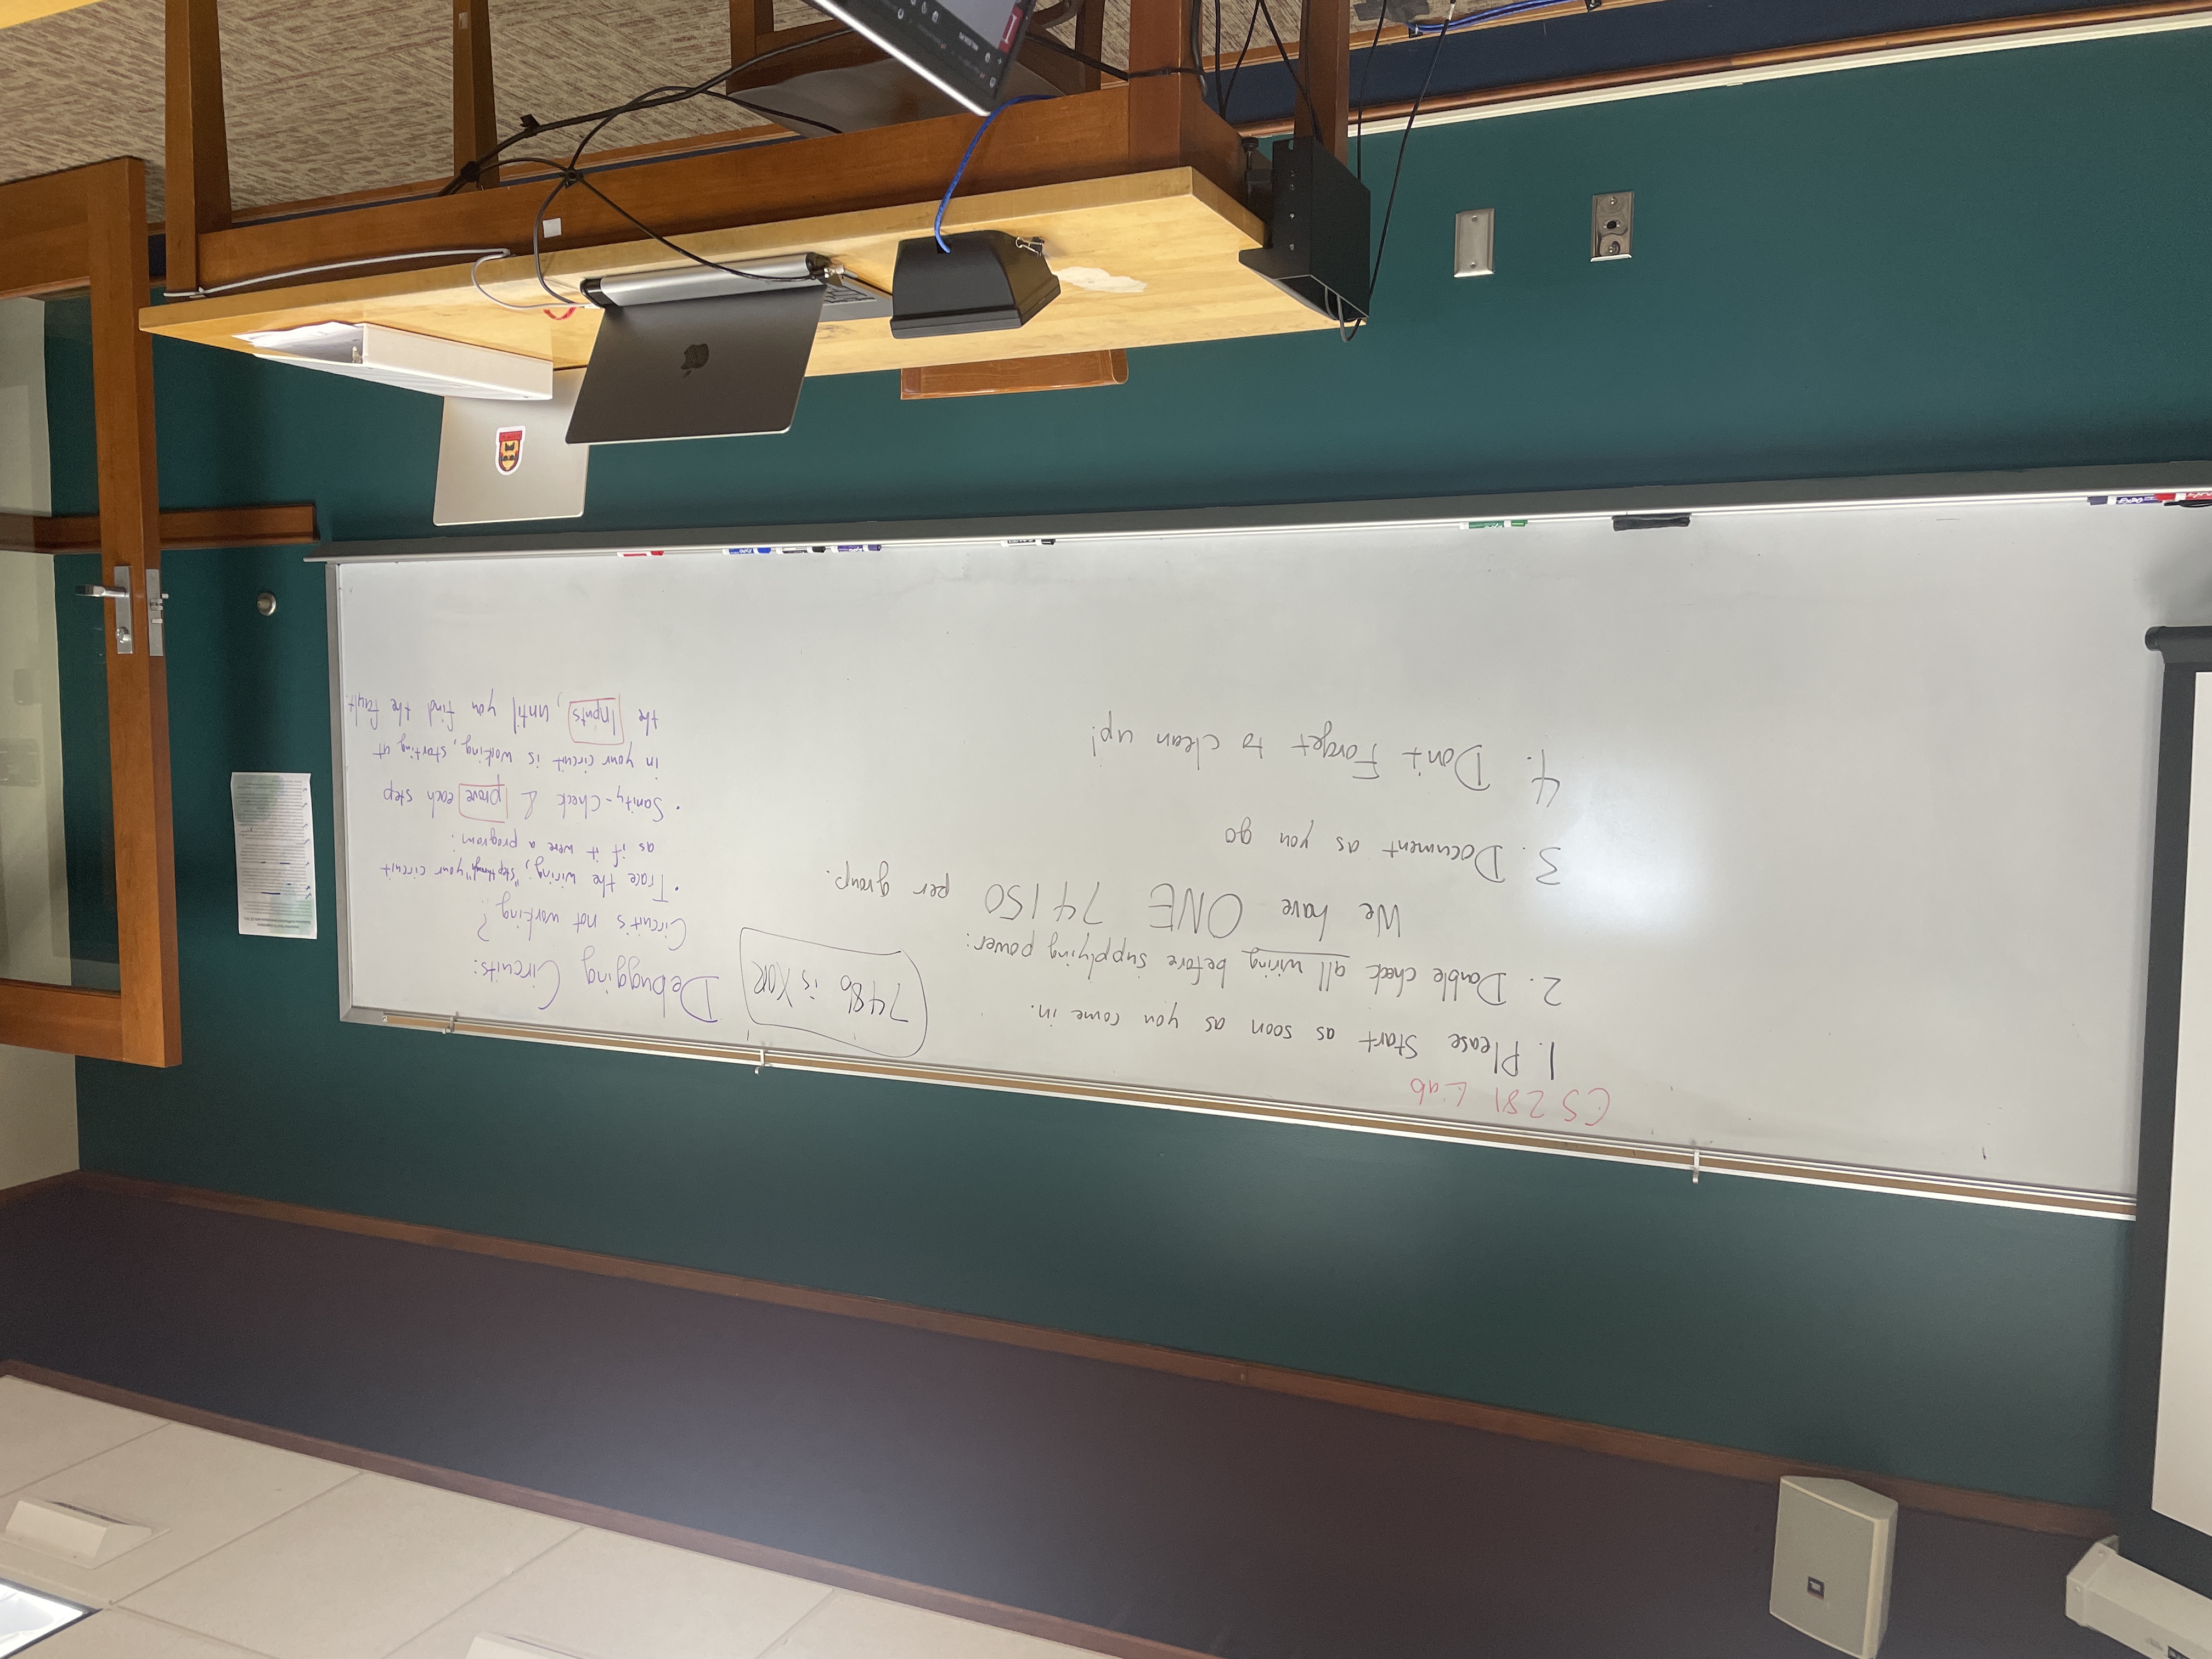 CS 281 Lab
1. Please Start as soon as you come in.
2. Double check all wiring before supplying power:
We have ONE 74150 per group.
3. Document as you go
4. Don't Forget to clean up!
7486 is XOR
Debugging Circuits:
Circuit's not working?
• Trace the wiring; "step through" your circuit
as if it were a program.
• Sanity-check & prove each step
in your circuit is working, starting at
the Inputs, until you find the fault.